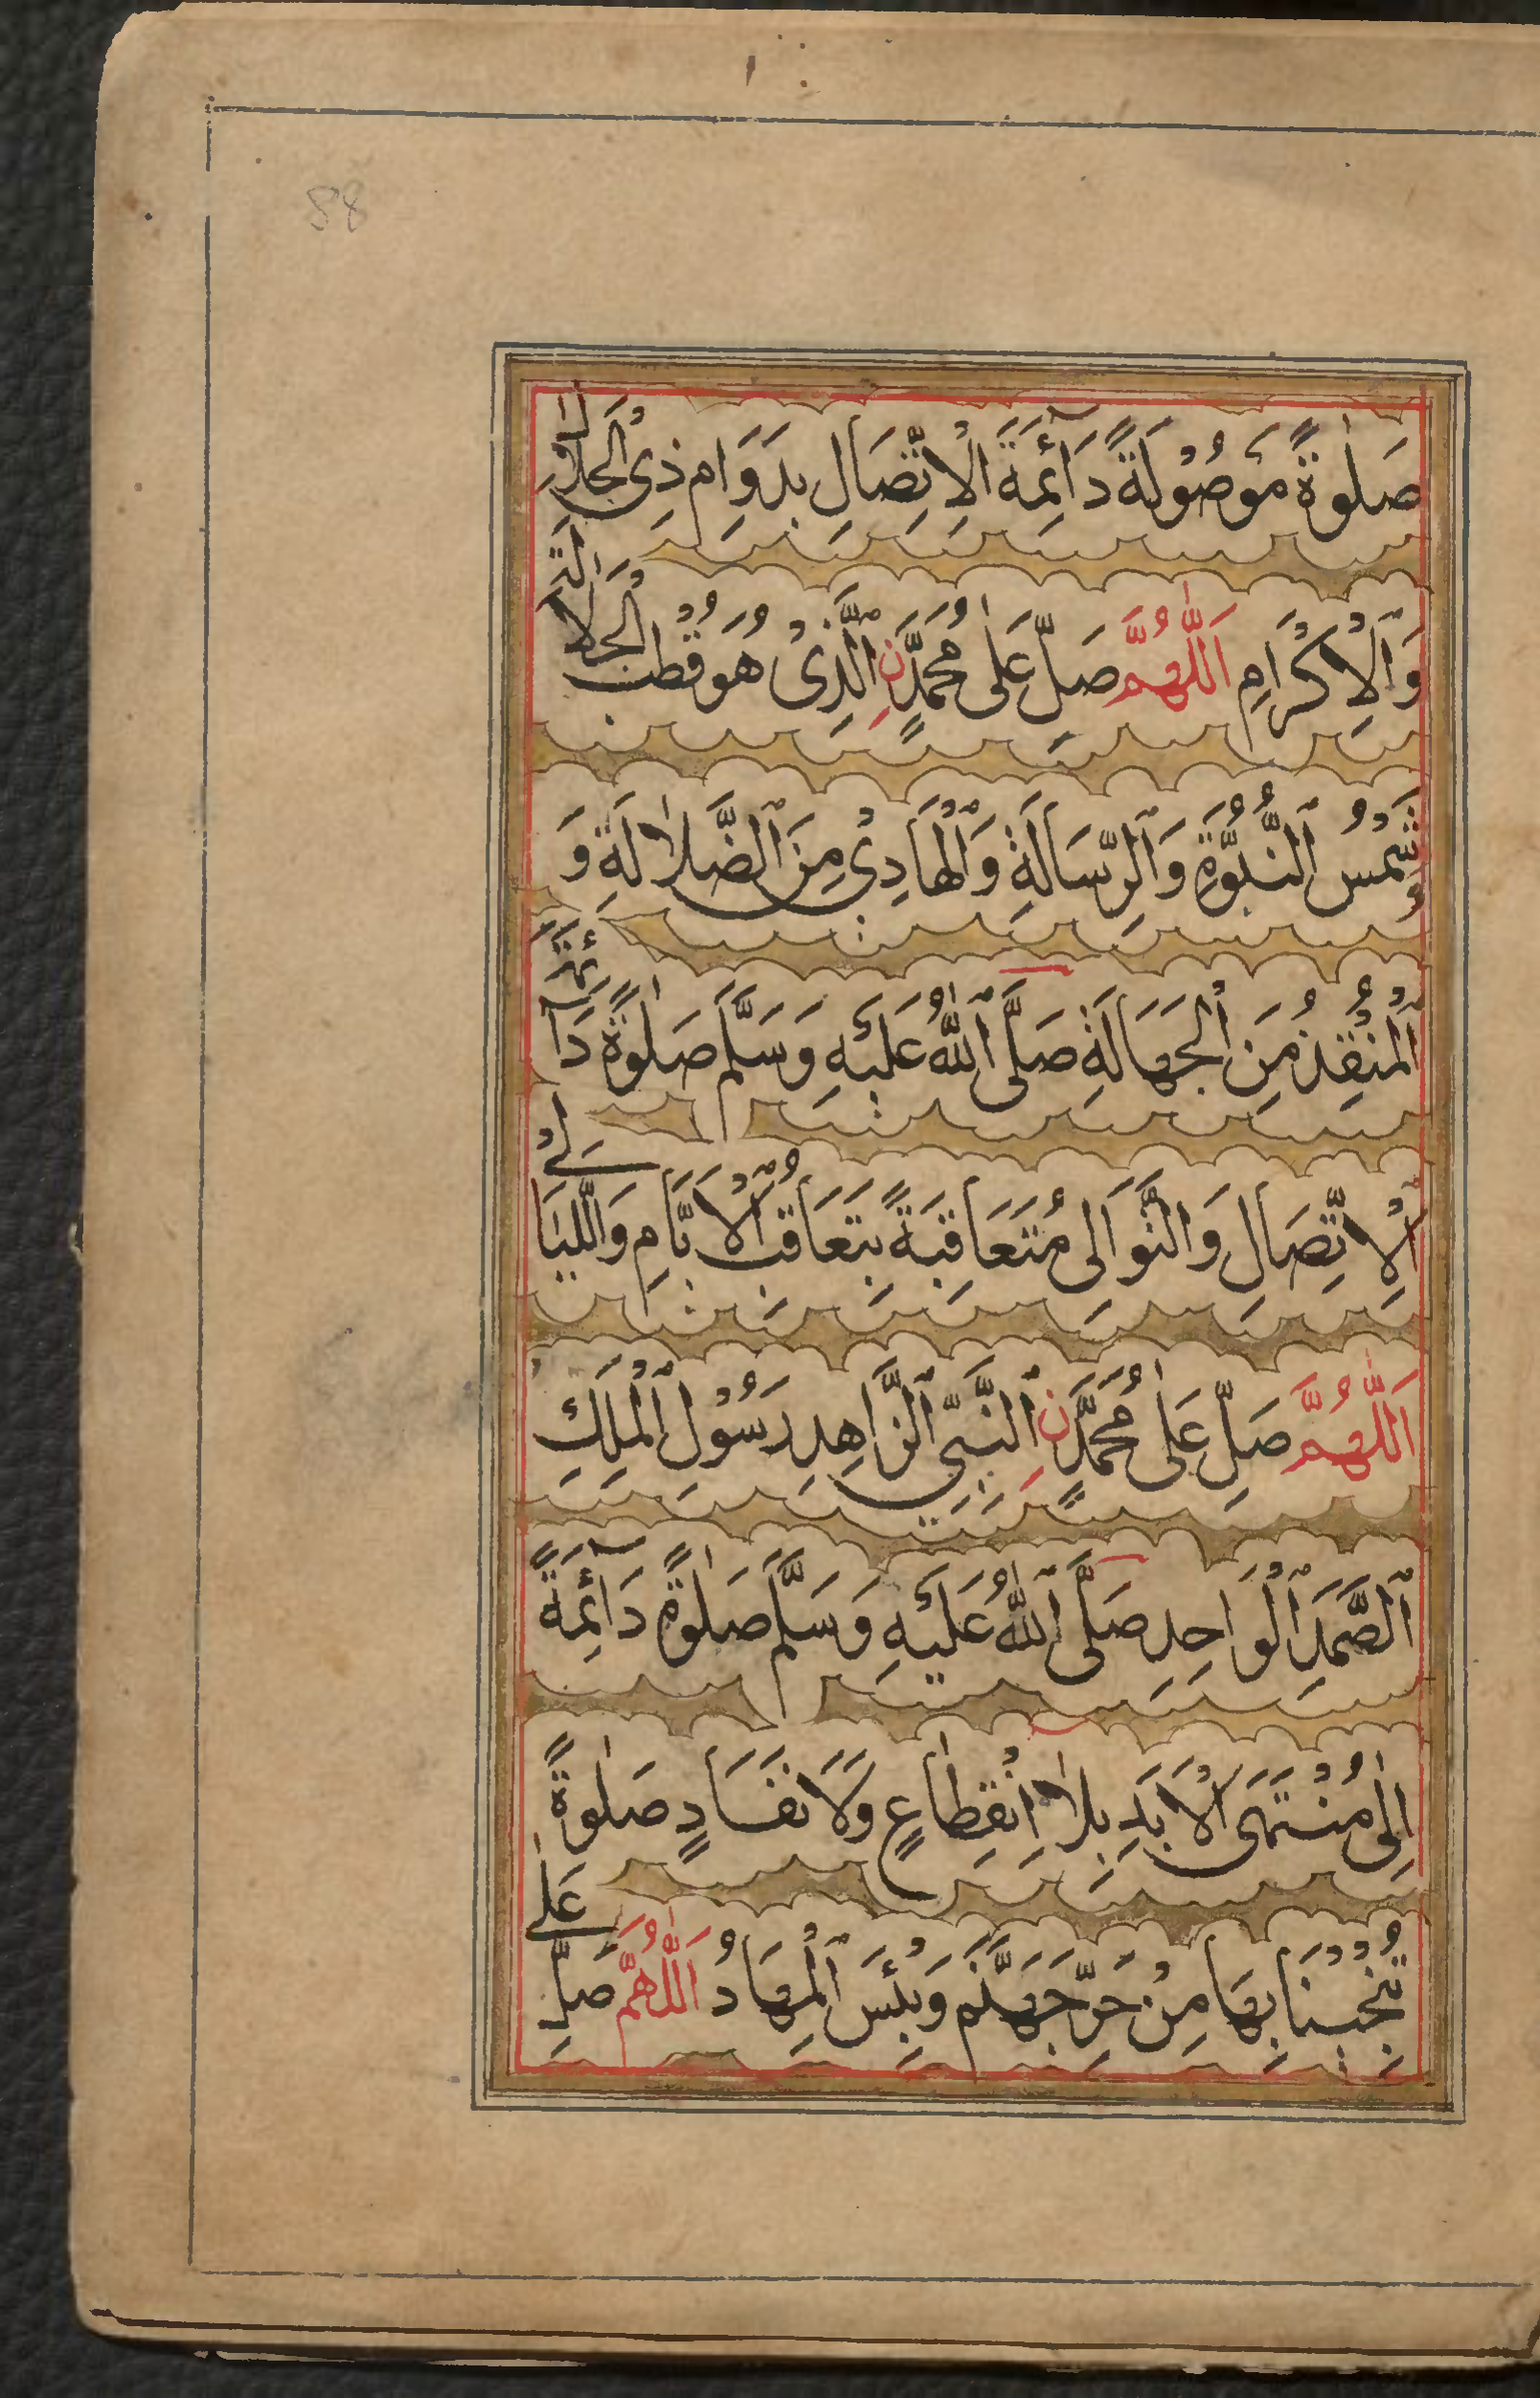 58
صَلٰوةً مَوْصُوْلَةً دَآئِمَةَ الْاِتِّصَالِ بِدَوَامِ ذِى الْجَلَالِ
وَالْاِكْرَامِ اَللّٰهُمَّ صَلِّ عَلٰى مُحَمَّدٍنِ الَّذِىْ هُوَ قُطْبُ الْجَلَالَةِ
وَشَمْسُ النُّبُوَّةِ وَالرِّسَالَةِ وَالْهَادِىْ مِنَ الضَّلَالَةِ وَ
الْمُنْقِذُ مِنَ الْجَهَالَةِ صَلَّى اللّٰهُ عَلَيْهِ وَسَلَّمَ صَلٰوةً دَآئِمَةَ
الْاِتِّصَالِ وَالتَّوَالِى مُتَعَاقِبَةً بِتَعَاقُبِ الْاَيَّامِ وَاللَّيَالِىْ
اَللّٰهُمَّ صَلِّ عَلٰى مُحَمَّدٍنِ النَّبِىِّ الزَّاهِدِ رَسُوْلِ الْمَلِكِ
الصَّمَدِ الْوَاحِدِ صَلَّى اللّٰهُ عَلَيْهِ وَسَلَّمَ صَلٰوةً دَآئِمَةً
اِلٰى مُنْتَهَى الْاَبَدِ بِلَا انْقِطَاعٍ وَلَا نَفَادٍ صَلٰوةً
تُنْجِيْنَا بِهَا مِنْ حَرِّ جَهَنَّمَ وَبِئْسَ الْمِهَادُ اَللّٰهُمَّ صَلِّ عَلٰى